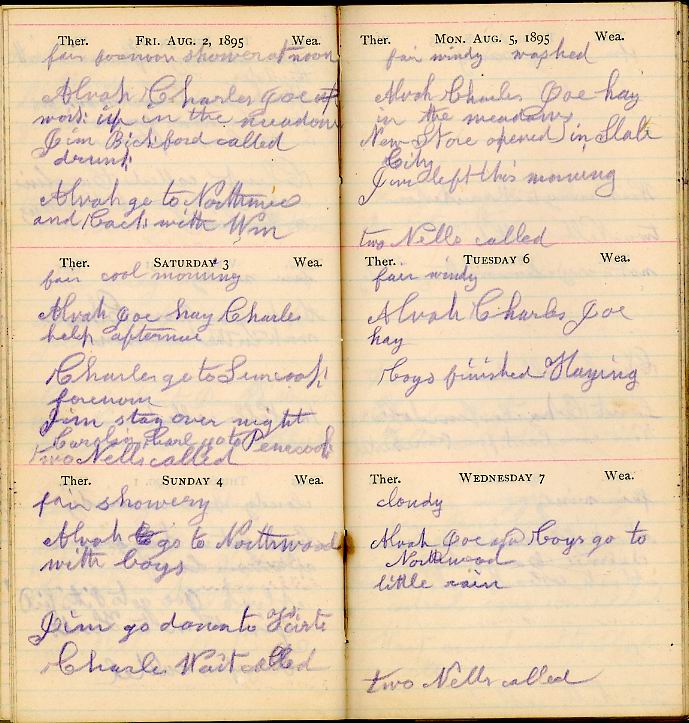 Ther. FRI. AUG. 2, 1895 Wea.
fair forenoon shower at noon
Alvah Charles Joe
work up in the meadow
Jim Bickford called
drunk
Alvah go to Northwood
and back with Wm
Ther. SATURDAY 3 Wea.
fair cool morning
Alvah Joe hay Charles
help afternue
Charles go to Suncook
forenorn
Jim stay over night
Carl go to Penecook
two Nells called
Ther. SUNDAY 4 Wea.
fair showery
Alvah go to Northwood
with boys
Jim go down to
Charle Wait called
Ther. MON. AUG. 5, 1895 Wea.
fair windy washed
Alvah Charles Joe hay
in the meadow
New Store opened in Slab
City
Jim left this morning
two Nells called
Ther. TUESDAY 6 Wea.
fair windy
Alvah Charles Joe
hay
boys finished Haying
Ther. WEDNESDAY 7 Wea.
cloudy
Alvah Joe and boys go to
Northwood
little rain
two Nells called